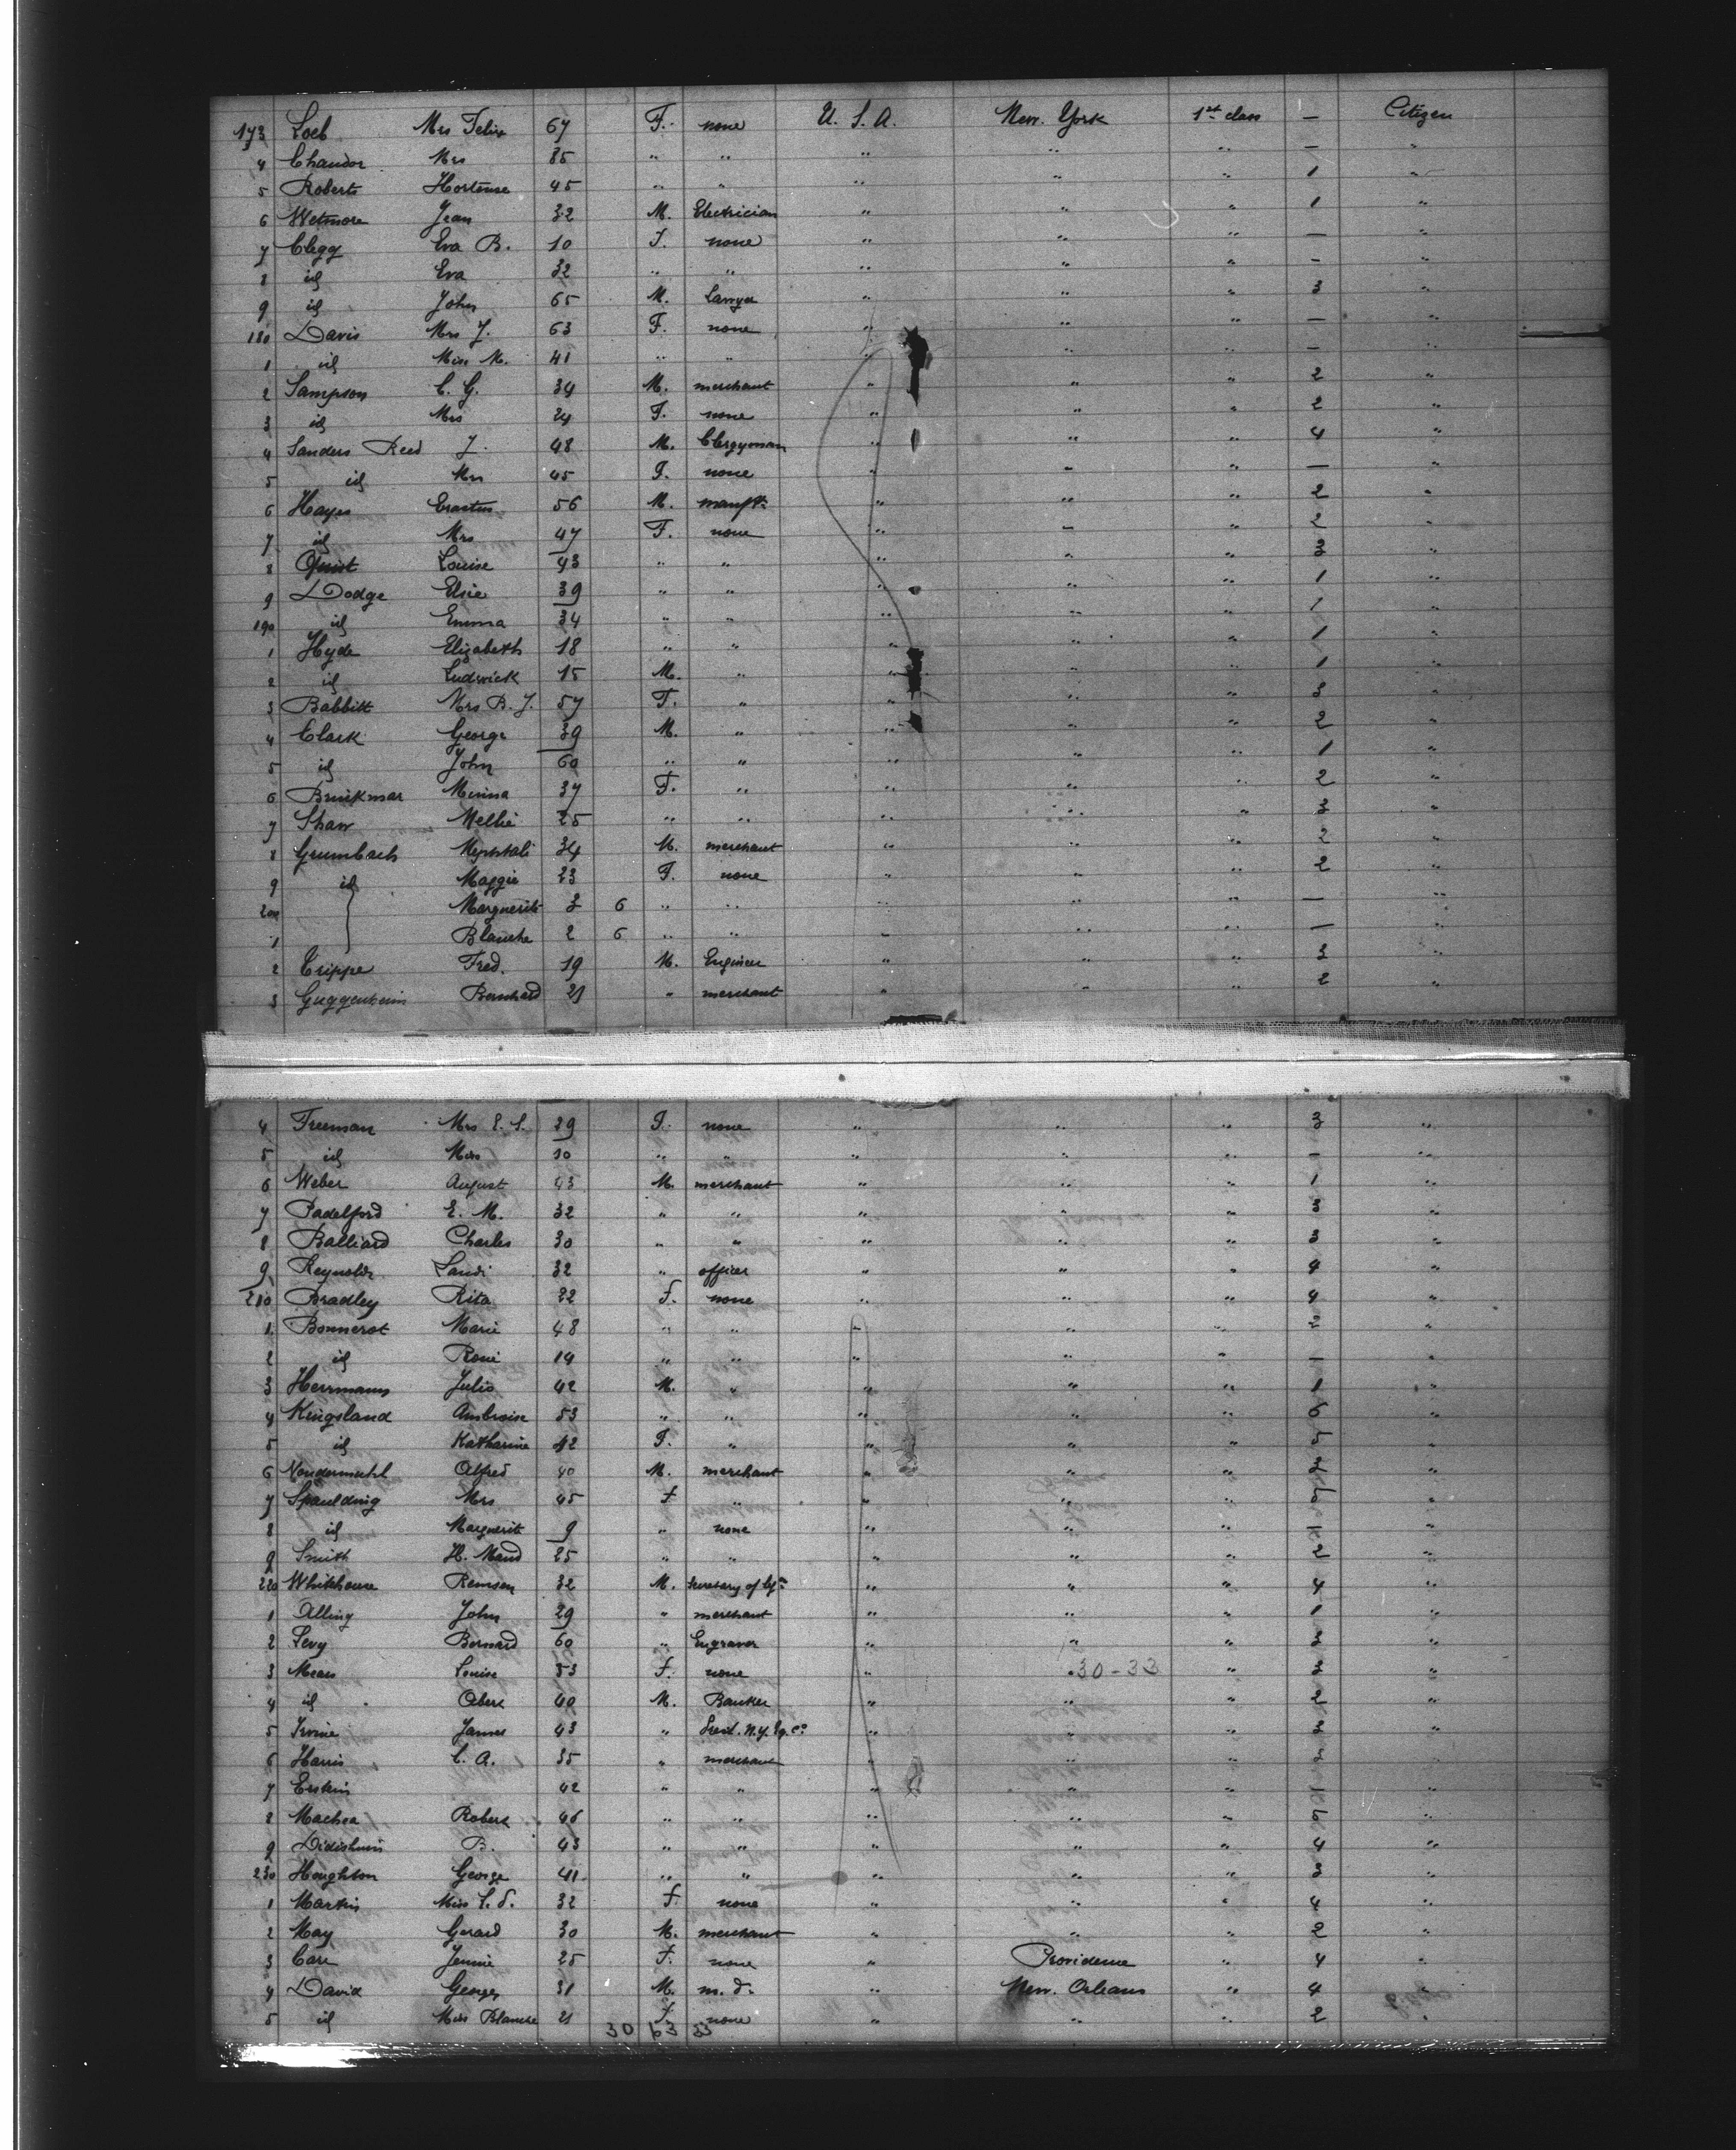 173 Loeb Mrs Felix 67 F. none U. S. A. New. York 1st class — Citizen
4 Chandor Mrs 85 " " " " " — "
5 Roberts Hortense 45 " " " " " 1 "
6 Wetmore Jean 32 M. Electrician " " " 1 "
7 Clegg Eva B. 10 F. none " " " — "
8 id Eva 32 " " " " " — "
9 id John 65 M. Lawyer " " " 3 "
180 Davis Mrs J. 63 F. none " " " — "
1 id Miss M. 41 " " " " " — "
2 Sampson C. G. 34 M. merchant " " " 2 "
3 id Mrs 24 F. none " " " 2 "
4 Sanders Reed J. 48 M. Clergyman " " " 4 "
5 id Mrs 45 F. none " " " — "
6 Hayes Erastus 56 M. manufr " " " 2 "
7 id Mrs 47 F. none " " " 2 "
8 Louise 43 " " " " " 3 "
9 Dodge Elsie 39 " " " " " 1 "
190 id Emma 34 " " " " " 1 "
1 Hyde Elizabeth 18 " " " " " 1 "
2 id Ludwick 15 M. " " " " 1 "
3 Babbitt Mrs B. J. 57 F. " " " " 3 "
4 Clark George 39 M. " " " " 2 "
5 id John 60 " " " " " 1 "
6 Brinkmar Minna 37 F. " " " " 2 "
7 Shaw Nellie 25 " " " " " 3 "
8 Grumbach Nephtali 34 M. merchant " " " 2 "
9 id Maggie 23 F. none " " " 2 "
200 Marguerite 3 6 " " " " " — "
1 Blanche 2 6 " " " " " — "
2 Crippe Fred. 19 M. Engineer " " " 3 "
3 Guggenheim Bernhard 21 " merchant " " " 2 "
4 Freeman Mrs E. S. 29 F. none " " " 3 "
5 id Miss 10 " " " " " — "
6 Weber August 43 M. merchant " " " 1 "
7 Padelford E. M. 32 " " " " " 3 "
8 Balliard Charles 30 " " " " " 3 "
9 Reynolds 32 " officer " " " 4 "
210 Bradley Rita 22 F. none " " " 4 "
1 Bonnerot Marie 48 " " " " " 2 "
2 id Rosie 14 " " " " " — "
3 Herrmann Julio 42 M. " " " " 1 "
4 Kingsland Ambroise 53 " " " " " 6 "
5 id Katharine 42 F. " " " " "
6 Vondermuhl Alfred 40 M. merchant " " " 2 "
7 Spaulding Mrs 45 F " " " " "
8 id Marguerite 9 " none " " " 1 "
9 Smith H. Maud 25 " " " " " 2 "
220 Whitehouse Remsen 32 M. Secretary of Lgn " " " 4 "
1 Alling John 29 " merchant " " " 1 "
2 Levy Bernard 60 " Engraver " " " 2 "
3 Mean Louise 33 F. none " 30-33 " 2 "
4 id Albert 40 M. Banker " " " 2 "
5 Irvine James 43 " " " " 2 "
6 Harris C. A. 35 " merchant " " " 2 "
7 Erskin 42 " " " " " 1 "
8 Robert 46 " " " " " 5 "
9 Didisheim B. 43 " " " " " 4 "
230 Houghton George 41 " " " " " 3 "
1 Martin Miss S. S. 32 F. none " " " 4 "
2 May Gerard 30 M. merchant " " " 2 "
3 Carr Jennie 25 F. none " Providence " 4 "
4 David Georges 31 M. m. d. " New. Orleans " 4 "
5 id Miss Blanche 21 F. none " " " 2 "
30 63 33